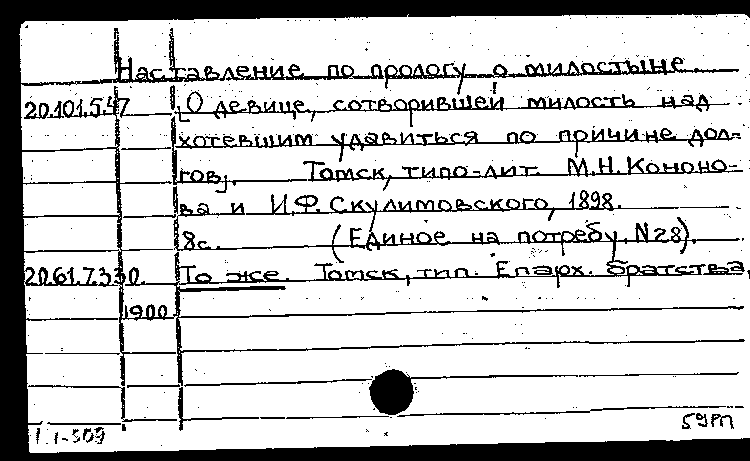 Наставление по прологу о милостыне.
20.101.5.47 [О девице, сотворившей милость над
хотевшим удавиться по причине дол-
гов]. Томск, типо-лит. М.Н. Кононо-
ва и И.Ф. Скулимовского, 1898.
8с. (Единое на потребу. N28).
20.61.7.330. То же. Томск, тип. Епарх. братства,
1900
1.1-509 59РП